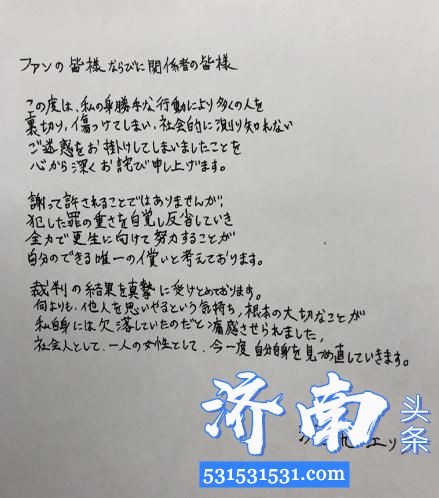 ファンの皆様ならびに関係者の皆様
この度は、私の身勝手な行動により多くの人を
裏切り、傷つけてしまい、社会的に測り知れない
ご迷惑をお掛けしてしまいましたことを
心から深くお詫び申し上げます。
謝って許されることではありませんが、
犯した罪の重さを自覚し反省していき
全力で更生に向けて努力することが
自分のできる唯一の償いと考えております。
裁判の結果を真摯に受けとめております。
何よりも、他人を思いやるという気持ち、根本の大切なことが
私自身には欠落していたのだと痛感させられました。
社会人として、一人の女性として、今一度自分自身を見つめ直していきます。
エリ
济南头条
531531531.com